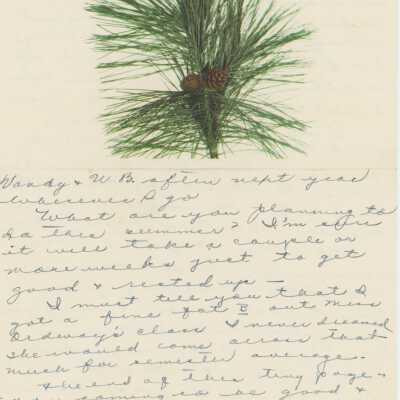 Dandy & W.B. often next year
wherever I go
What are you planning to
do this summer? I'm sure
it will take a couple or
more weeks just to get
good & rested up —
I must tell you that I
got a fine fat B out Miss
Ordway's class I never dreamed
she would come across that
much for semester average.
& the end of this tiny page &
coming to be good &